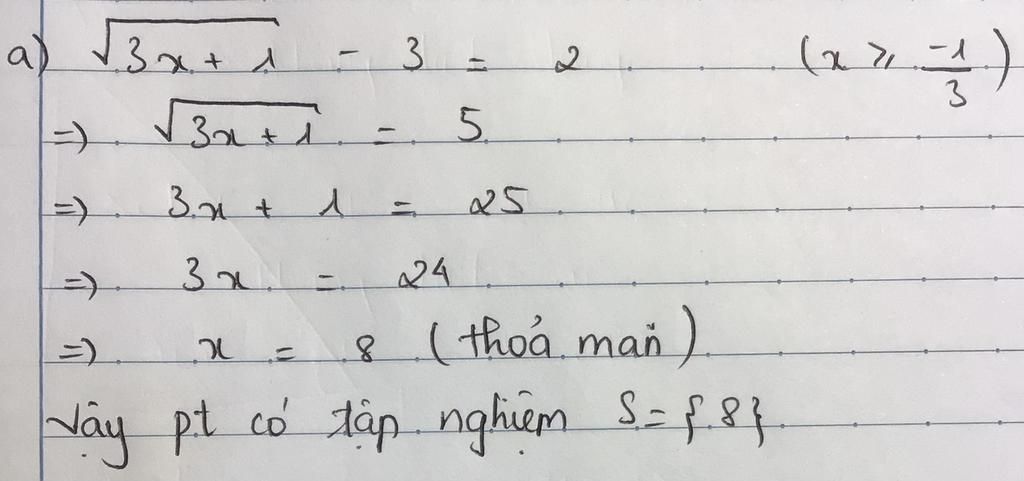 a) √(3x + 1) - 3 = 2 (x ⩾ -1/3)
=) √(3x + 1) = 5
=) 3x + 1 = 25
=) 3x = 24
=) x = 8 (thoả mãn)
Vậy pt có tập nghiệm S = {8}